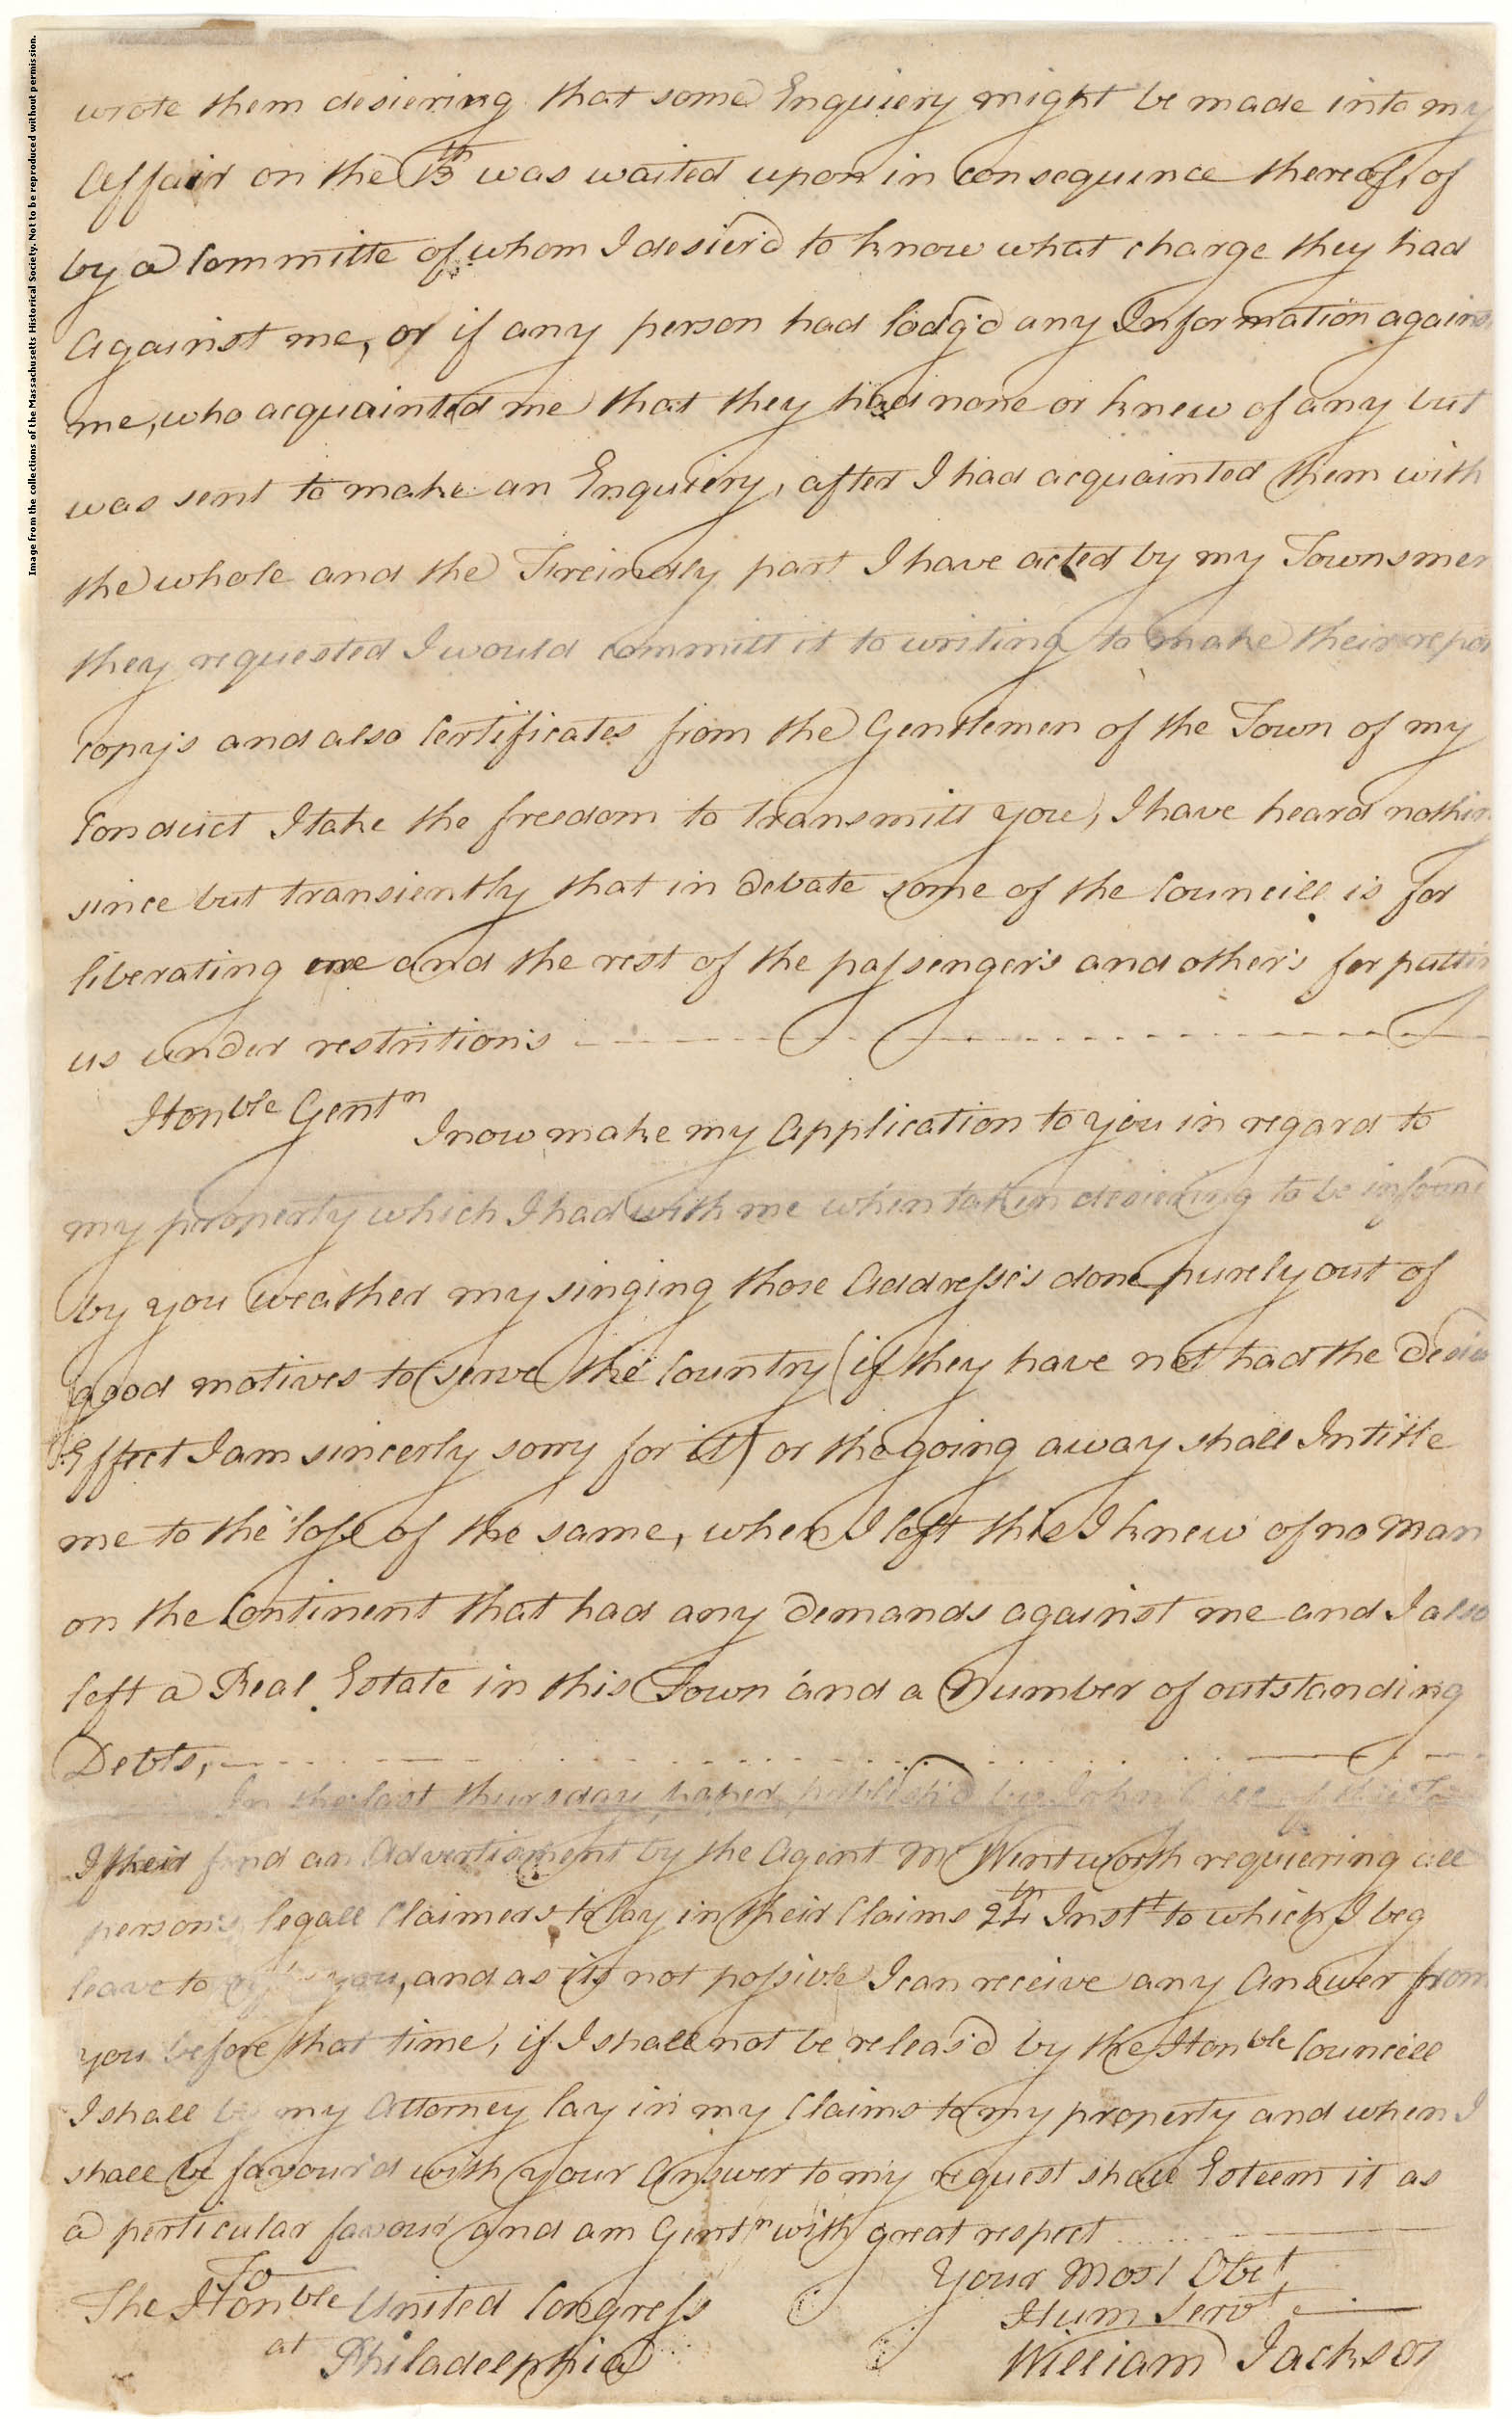 Image from the collections of the Massachusetts Historical Society. Not to be reproduced without permission.
wrote them desiering that some Enquiery might be made into my
Affair on the 13th was waited upon in Consequence thereof, of
by a Committe of whom I desier'd to know what charge they had
Against me, or if any person had lodg'd any Information agains
me, who acquainted me that they had none or knew of any but
was sent to make an Enquiery, after I had acquainted them with
the whole and the Freindly part I have acted by my Townsmen
they requested I would committ it to writing to make their repor
Copys and also Certificates from the Gentlemen of the Town of my
Conduct I take the freedom to transmitt you, I have heard nothin
since but transiently that in Debate some of the Councill is for
liberating me and the rest of the passenger's and other's for puttin
us under restrition's
Honble Gentn I now make my Application to you in regard to
my property which I had with me when taken desiering to be inform'd
by you weather my singing those Address's done purely out of
good motives to serve the Country (if they have not had the Desier
Effect I am sincerly sorry for it) or the going away shall Intitle
me to the loss of the same, when I left this I knew of no Man
on the Continent that had any Demands against me and I also
left a Real Estate in this Town and a Number of outstanding
Debts,
In the last thursday paper publish'd by John Gill of this
I their find an Advertisment by the Agent Mr Wintworth requiering all
person's legall Claimers to lay in their Claims 24th Instt to which I beg
leave to you, and as its not possible I can receive any Answer from
you before that time, if I shall not be releas'd by the Honble Councill
I shall by my Attorney lay in my Claims to my property and when I
shall be favour'd with your Answer to my request shall Esteem it as
a perticular favour and am Gentn with great respect
To
The Honble United Congress
at Philadelphia
Your Most Obet
Hum Servt
William Jackson